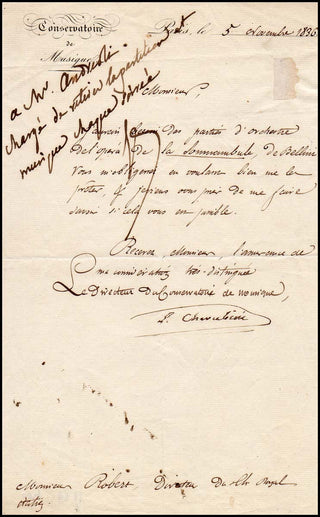 Conservatoire
de
Musique.
Paris, le 5 Décembre 1836
a Mr. 
chargé de retirer la partition et
musique chaque soirée
Monsieur
J'aurais besoin des parties d'orchestre
de l'opéra de la Somnambule, de Bellini
Vous m'obligerez en voulant bien me les
prêter, et je vous prie de me faire
savoir si cela vous est possible.
Recevez, Monsieur, l'assurance de
ma considération très distinguée
Le Directeur du Conservatoire de musique,
L. Cherubini
Monsieur Robert, Directeur du Th. Royal